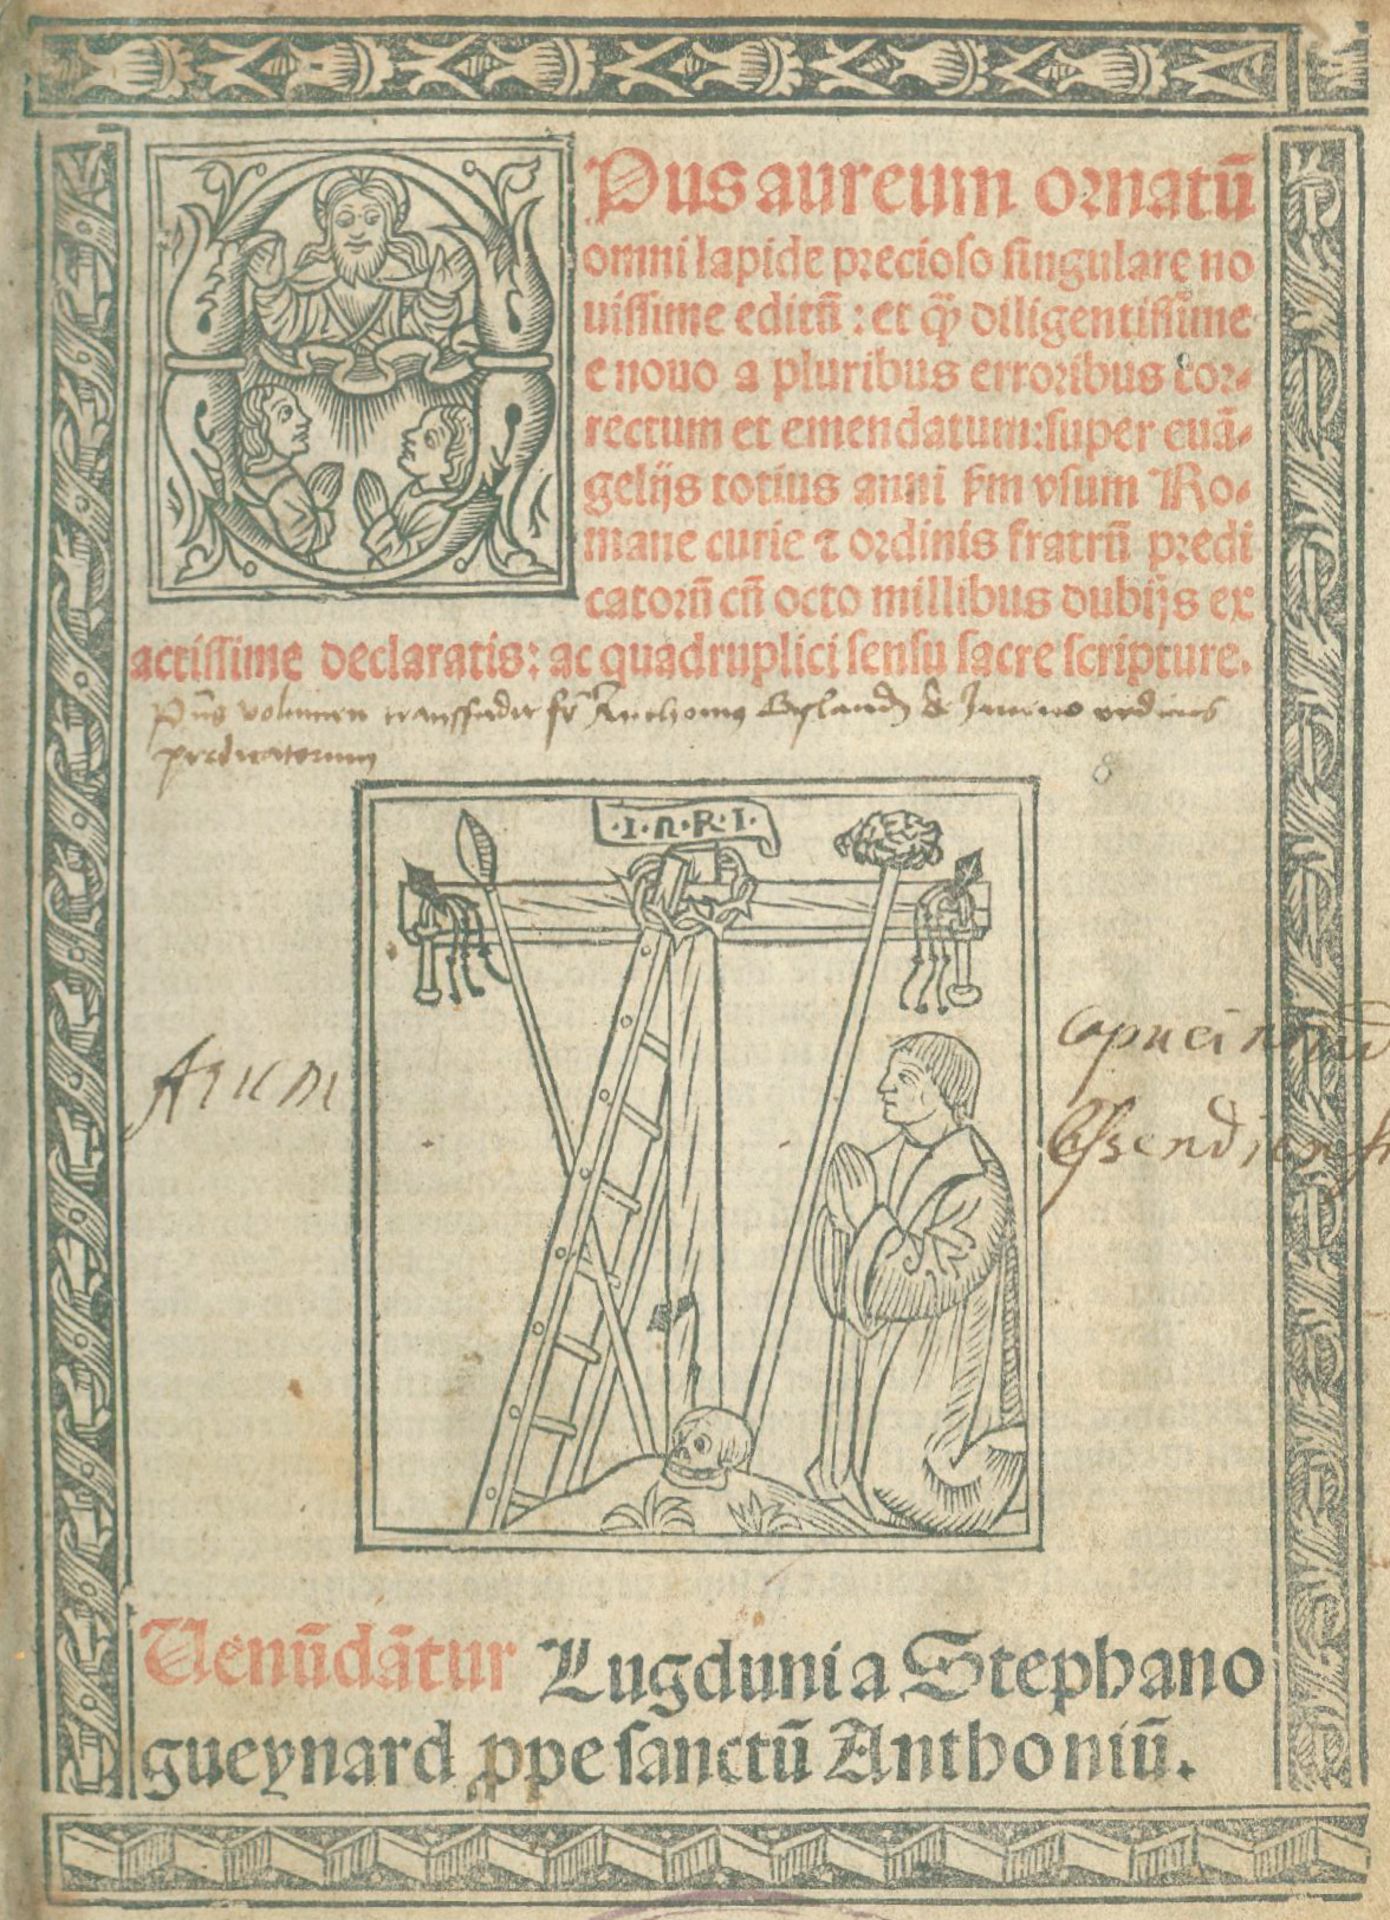 OPus aureum ornatū
omni lapide precioso singulare no
uissime editū : et q̄ȝ diligentissime
e nouo a pluribus erroribus cor⸗
rectum et emendatum:super euā⸗
gelijs totius anni ẜm vsum Ro⸗
mane curie ⁊ ordinis fratrū predi
catorū cū octo millibus dubijs ex
actissime declaratis: ac quadruplici sensu sacre scripture.
volumen fr̄ Anthonius de ordinis
predicatorum
8
.I.N.R.I.
Venūdātur Lugduni a Stephano
gueynard ꝓpe sanctū Anthoniū.